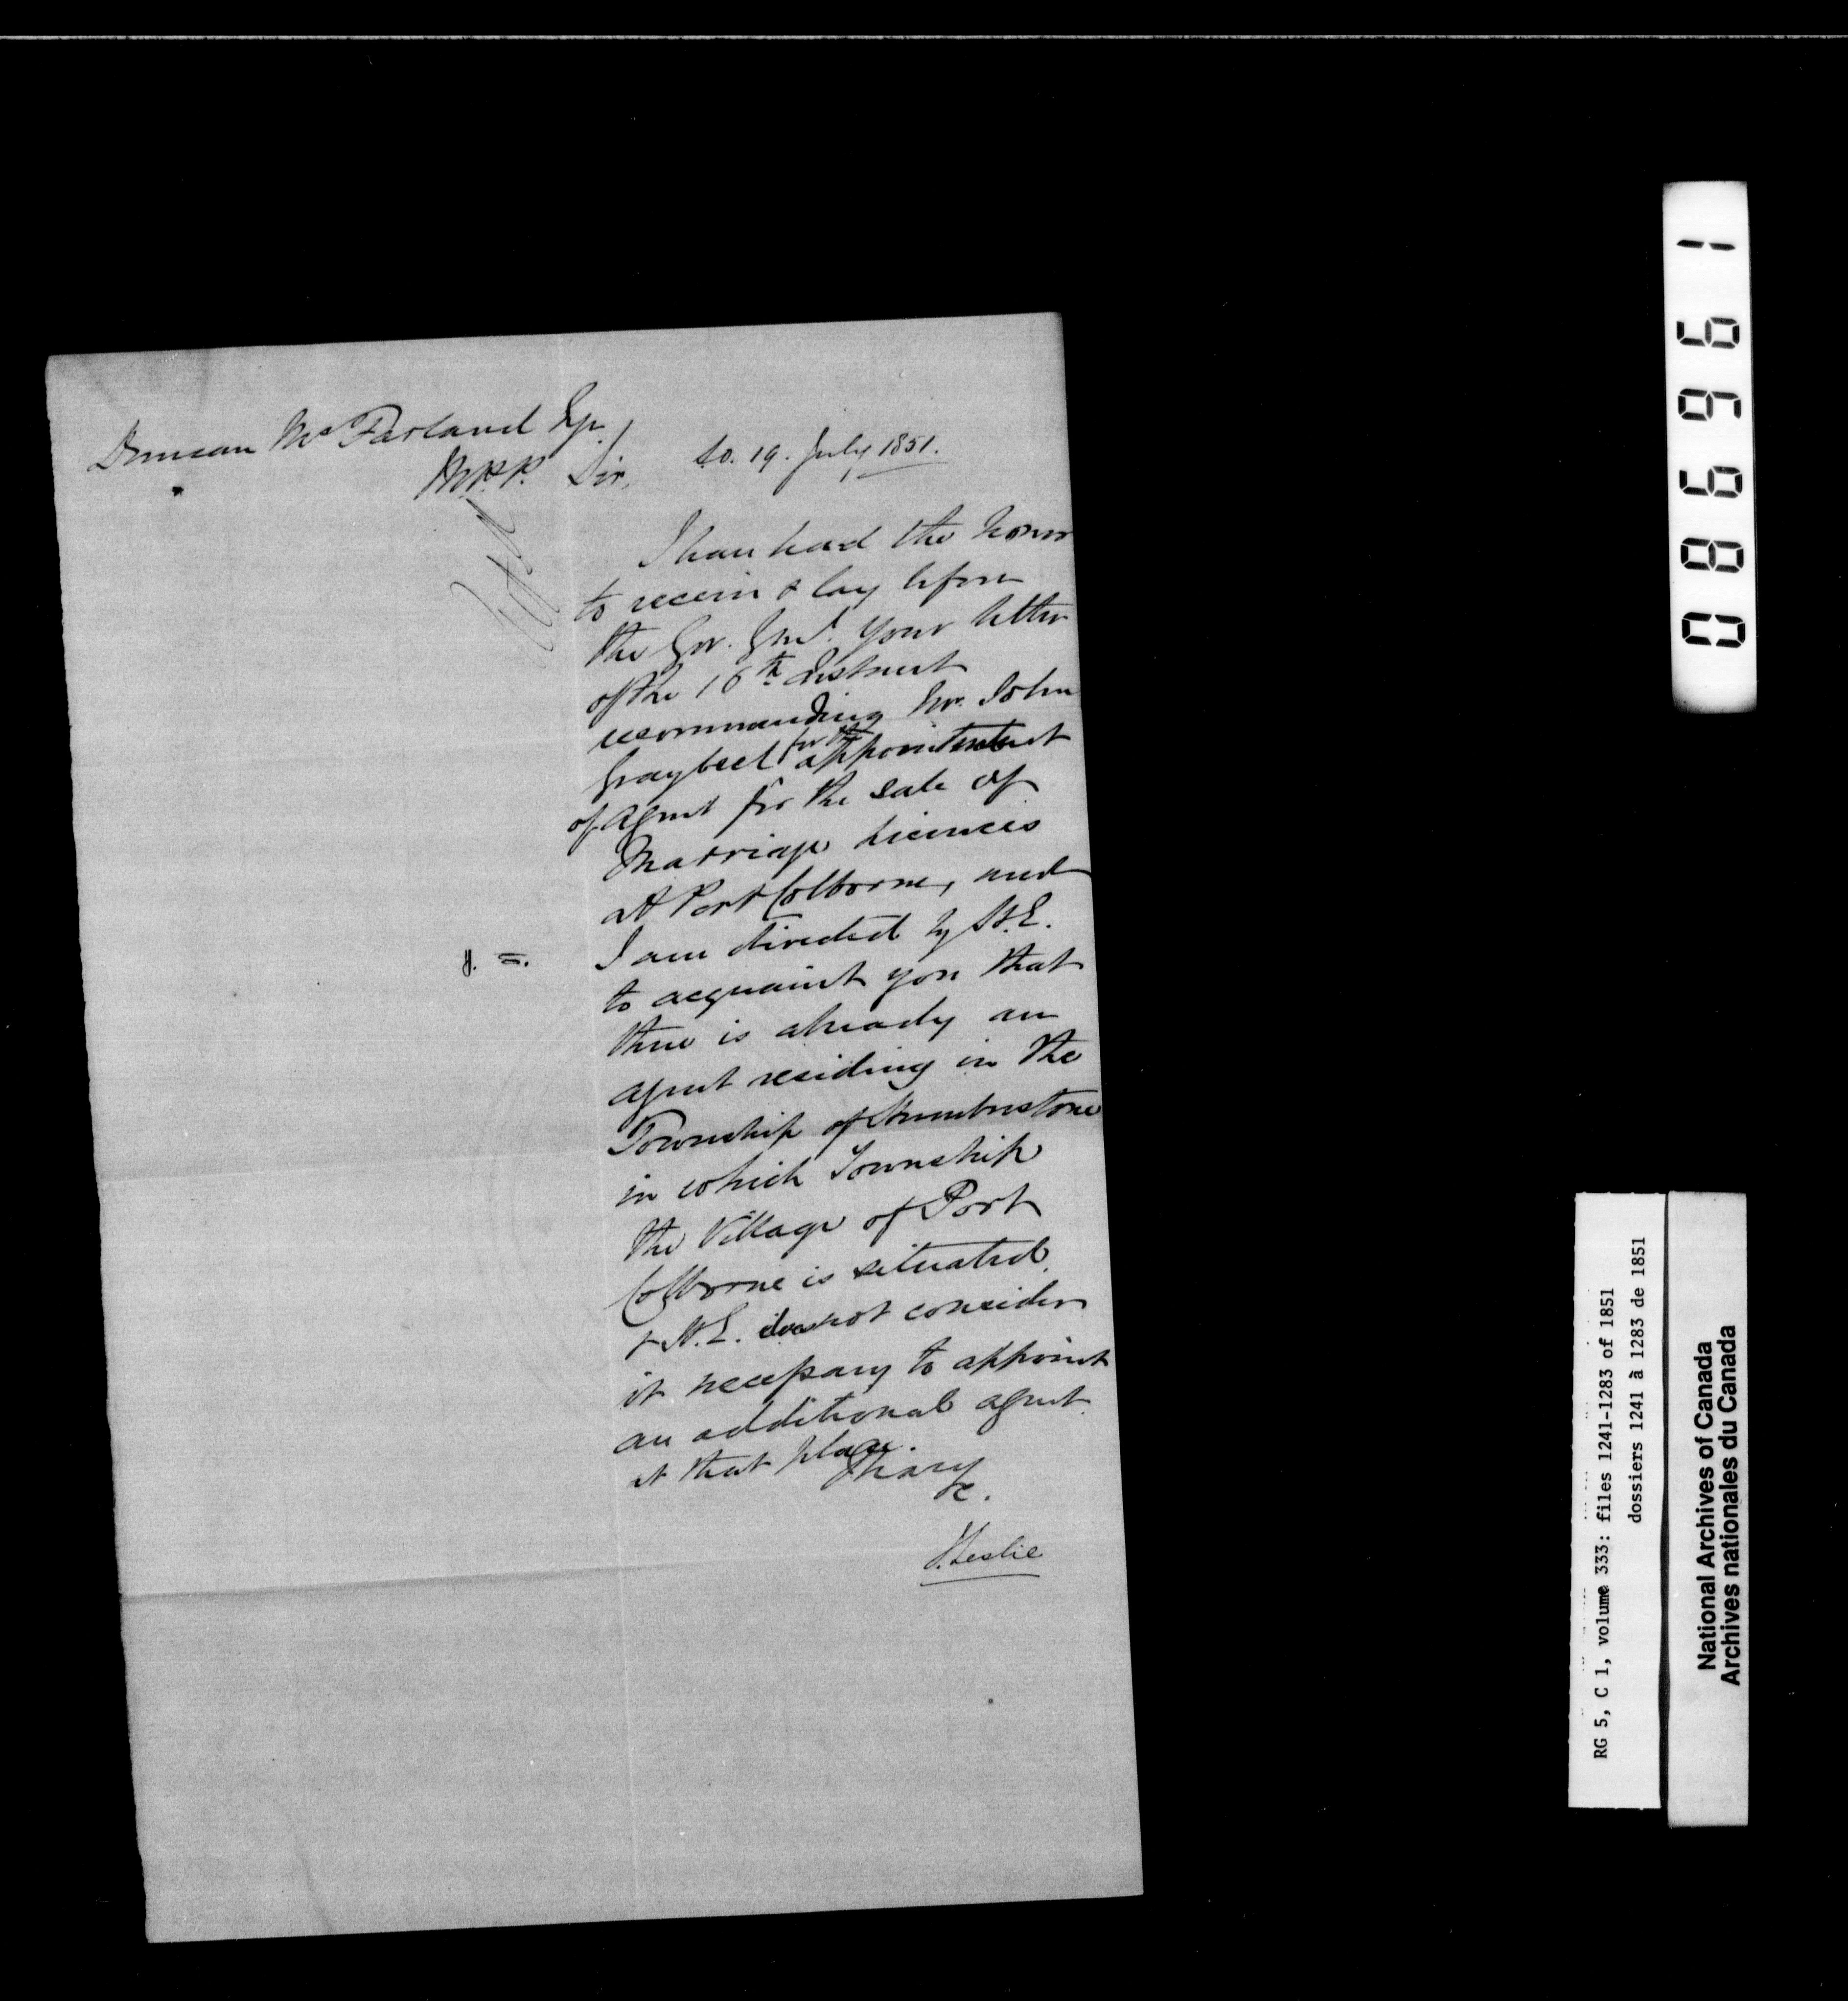 Duncan McFarland Esqr.
M.P.P. Sir,
So. 19. July 1851.
I have had the honor
to receive & lay before
the Gov. Genl. your letter
of the 16th. instant
recommending Mr. John
Graybeel for the appointment
of agent for the sale of
Marriage Licences
at Port Colborne, and
I am directed by H.E.
to acquaint you that
there is already an
agent residing in the
Township of Humberstone
in which Township
the Village of Port
Colborne is situated,
& H.E. does not consider
it necessary to appoint
an additional agent
at that place.
I have
&c.
J. Leslie
086961
RG 5, C 1, volume 333: files 1241-1283 of 1851
dossiers 1241 à 1283 de 1851
National Archives of Canada
Archives nationales du Canada